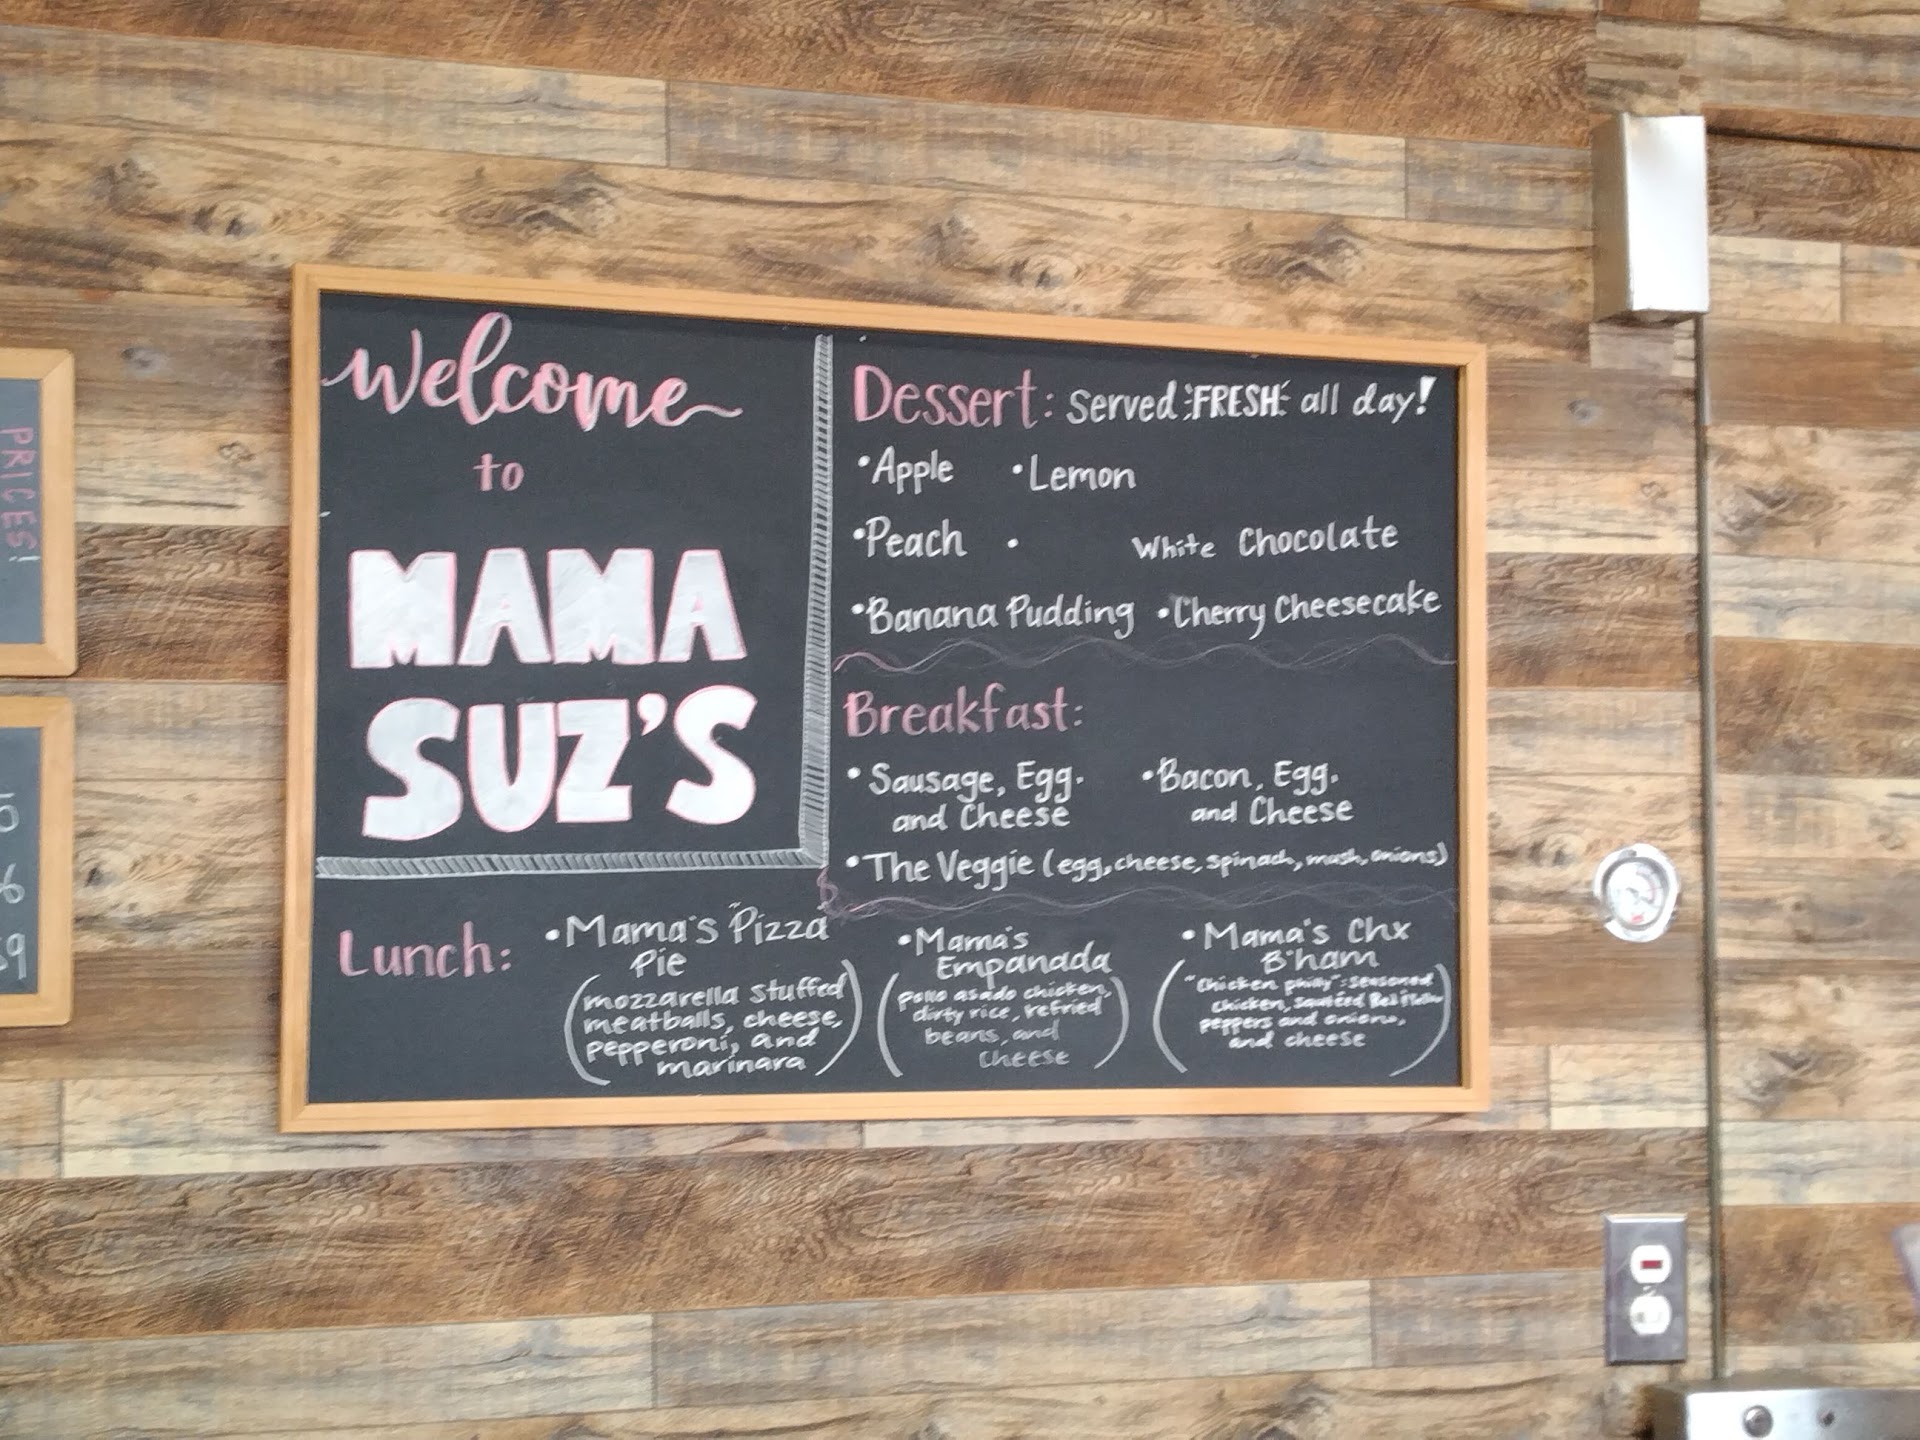 Welcome
to
MAMA
SUZ'S
Dessert: served FRESH all day!
•Apple •Lemon
•Peach • White Chocolate
•Banana Pudding •Cherry Cheesecake
Breakfast:
•Sausage, Egg.
and Cheese
•Bacon, Egg.
and Cheese
•The Veggie (egg, cheese, spinach, mush, onions)
Lunch:
•Mama's "Pizza"
Pie
(mozzarella stuffed
meatballs, cheese,
pepperoni, and
marinara)
•Mama's
Empanada
(pollo asado chicken,
dirty rice, refried
beans, and
cheese)
•Mama's Chx
B'ham
("Chicken philly": seasoned
chicken, sautéed Red
peppers and onions,
and cheese)
PRICES!